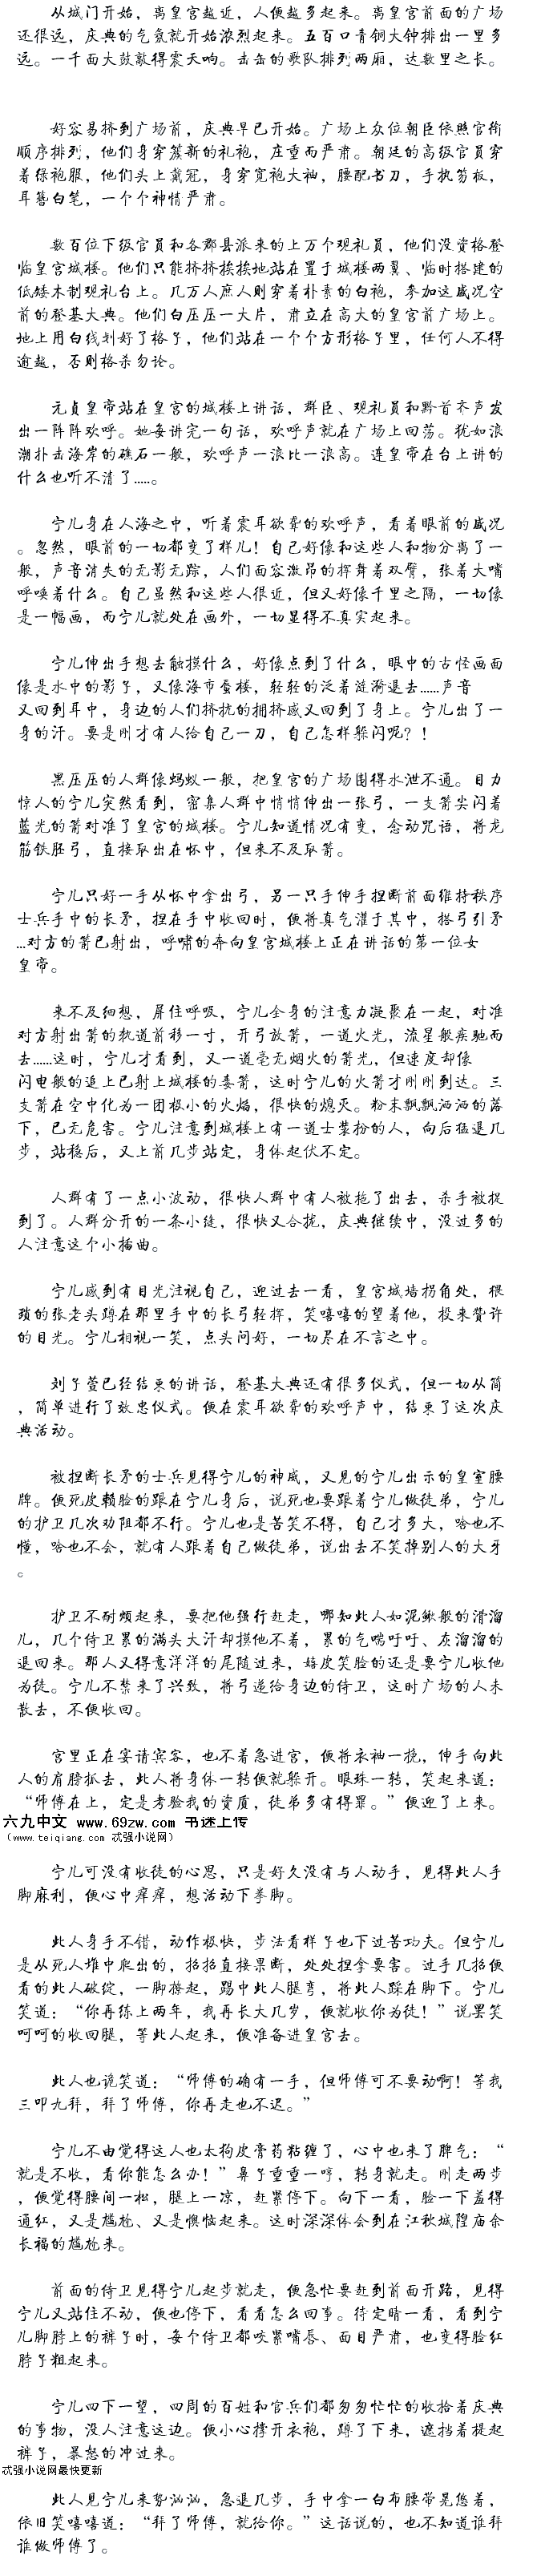 从城门开始，离皇宫越近，人便越多起来。离皇宫前面的广场
还很远，庆典的气氛就开始浓烈起来。五百口青铜大钟排出一里多
远。一千面大鼓敲得震天响。击缶的歌队排列两厢，达数里之长。
好容易挤到广场前，庆典早已开始。广场上众位朝臣依照官衔
顺序排列，他们身穿簇新的礼袍，庄重而严肃。朝廷的高级官员穿
着绿袍服，他们头上戴冠，身穿宽袍大袖，腰配书刀，手执笏板，
耳簪白笔，一个个神情严肃。
数百位下级官员和各郡县派来的上万个观礼员，他们没资格登
临皇宫城楼。他们只能挤挤挨挨地站在置于城楼两翼、临时搭建的
低矮木制观礼台上。几万人庶人则穿着朴素的白袍，参加这盛况空
前的登基大典。他们白压压一大片，肃立在高大的皇宫前广场上。
地上用白线划好了格子，他们站在一个个方形格子里，任何人不得
逾越，否则格杀勿论。
元贞皇帝站在皇宫的城楼上讲话，群臣、观礼员和黔首齐声发
出一阵阵欢呼。她每讲完一句话，欢呼声就在广场上回荡。犹如浪
潮扑击海岸的礁石一般，欢呼声一浪比一浪高。连皇帝在台上讲的
什么也听不清了.....。
宁儿身在人海之中，听着震耳欲聋的欢呼声，看着眼前的盛况
。忽然，眼前的一切都变了样儿！自己好像和这些人和物分离了一
般，声音消失的无影无踪，人们面容激昂的挥舞着双臂，张着大嘴
呼唤着什么。自己虽然和这些人很近，但又好像千里之隔，一切像
是一幅画，而宁儿就处在画外，一切显得不真实起来。
宁儿伸出手想去触摸什么，好像点到了什么，眼中的古怪画面
像是水中的影子，又像海市蜃楼，轻轻的泛着涟漪退去......声音
又回到耳中，身边的人们挤抗的拥挤感又回到了身上。宁儿出了一
身的汗。要是刚才有人给自己一刀，自己怎样躲闪呢？！
黑压压的人群像蚂蚁一般，把皇宫的广场围得水泄不通。目力
惊人的宁儿突然看到，密集人群中悄悄伸出一张弓，一支箭尖闪着
蓝光的箭对准了皇宫的城楼。宁儿知道情况有变，念动咒语，将龙
筋铁胚弓，直接取出在怀中，但来不及取箭。
宁儿只好一手从怀中拿出弓，另一只手伸手捏断前面维持秩序
士兵手中的长矛，捏在手中收回时，便将真气灌于其中，搭弓引矛
...对方的箭已射出，呼啸的奔向皇宫城楼上正在讲话的第一位女
皇帝。
来不及细想，屏住呼吸，宁儿全身的注意力凝聚在一起，对准
对方射出箭的轨道前移一寸，开弓放箭，一道火光，流星般疾驰而
去......这时，宁儿才看到，又一道毫无烟火的箭光，但速度却像
闪电般的追上已射上城楼的毒箭，这时宁儿的火箭才刚刚到达。三
支箭在空中化为一团极小的火焰，很快的熄灭。粉末飘飘洒洒的落
下，已无危害。宁儿注意到城楼上有一道士装扮的人，向后猛退几
步，站稳后，又上前几步站定，身体起伏不定。
人群有了一点小波动，很快人群中有人被拖了出去，杀手被捉
到了。人群分开的一条小缝，很快又合拢，庆典继续中，没过多的
人注意这个小插曲。
宁儿感到有目光注视自己，迎过去一看，皇宫城墙拐角处，猥
琐的张老头蹲在那里手中的长弓轻挥，笑嘻嘻的望着他，投来赞许
的目光。宁儿相视一笑，点头问好，一切尽在不言之中。
刘子萱已经结束的讲话，登基大典还有很多仪式，但一切从简
，简单进行了效忠仪式。便在震耳欲聋的欢呼声中，结束了这次庆
典活动。
被捏断长矛的士兵见得宁儿的神威，又见的宁儿出示的皇室腰
牌。便死皮赖脸的跟在宁儿身后，说死也要跟着宁儿做徒弟，宁儿
的护卫几次劝阻都不行。宁儿也是苦笑不得，自己才多大，啥也不
懂，啥也不会，就有人跟着自己做徒弟，说出去不笑掉别人的大牙
。
护卫不耐烦起来，要把他强行赶走，哪知此人如泥鳅般的滑溜
儿，几个侍卫累的满头大汗却摸他不着，累的气喘吁吁、灰溜溜的
退回来。那人又得意洋洋的尾随过来，嬉皮笑脸的还是要宁儿收他
为徒。宁儿不禁来了兴致，将弓递给身边的侍卫，这时广场的人未
散去，不便收回。
宫里正在宴请宾客，也不着急进宫，便将衣袖一挽，伸手向此
人的肩膀抓去，此人将身体一转便就躲开。眼珠一转，笑起来道：
“师傅在上，定是考验我的资质，徒弟多有得罪。”便迎了上来。
六九中文 www.69zw.com 书迷上传
（www.teiqiang.com 忒强小说网）
宁儿可没有收徒的心思，只是好久没有与人动手，见得此人手
脚麻利，便心中痒痒，想活动下拳脚。
此人身手不错，动作极快，步法看样子也下过苦功夫。但宁儿
是从死人堆中爬出的，招招直接果断，处处捏拿要害。过手几招便
看的此人破绽，一脚撩起，踢中此人腿弯，将此人踩在脚下。宁儿
笑道：“你再练上两年，我再长大几岁，便就收你为徒！”说罢笑
呵呵的收回腿，等此人起来，便准备进皇宫去。
此人也诡笑道：“师傅的确有一手，但师傅可不要动啊！等我
三叩九拜，拜了师傅，你再走也不迟。”
宁儿不由觉得这人也太狗皮膏药粘缠了，心中也来了脾气：“
就是不收，看你能怎么办！”鼻子重重一哼，转身就走。刚走两步
，便觉得腰间一松，腿上一凉，赶紧停下。向下一看，脸一下羞得
通红，又是尴尬、又是懊恼起来。这时深深体会到在江秋城隍庙余
长福的尴尬来。
前面的侍卫见得宁儿起步就走，便急忙要赶到前面开路，见得
宁儿又站住不动，便也停下，看看怎么回事。待定睛一看，看到宁
儿脚脖上的裤子时，每个侍卫都咬紧嘴唇、面目严肃，也变得脸红
脖子粗起来。
宁儿四下一望，四周的百姓和官兵们都匆匆忙忙的收拾着庆典
的事物，没人注意这边。便小心撑开衣袍，蹲了下来，遮挡着提起
裤子，暴怒的冲过来。
忒强小说网最快更新
此人见宁儿来势汹汹，急退几步，手中拿一白布腰带晃悠着，
依旧笑嘻嘻道：“拜了师傅，就给你。”这话说的，也不知道谁拜
谁做师傅了。